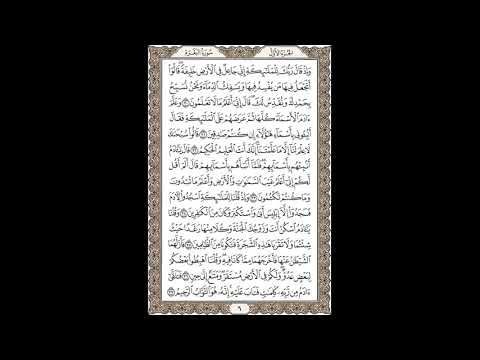 الجزء الأول سورة البقرة
وَإِذْ قَالَ رَبُّكَ لِلْمَلَٰٓئِكَةِ إِنِّى جَاعِلٌ فِى ٱلْأَرْضِ خَلِيفَةً قَالُوٓا۟
أَتَجْعَلُ فِيهَا مَن يُفْسِدُ فِيهَا وَيَسْفِكُ ٱلدِّمَآءَ وَنَحْنُ نُسَبِّحُ
بِحَمْدِكَ وَنُقَدِّسُ لَكَ قَالَ إِنِّىٓ أَعْلَمُ مَا لَا تَعْلَمُونَ ٣٠ وَعَلَّمَ
ءَادَمَ ٱلْأَسْمَآءَ كُلَّهَا ثُمَّ عَرَضَهُمْ عَلَى ٱلْمَلَٰٓئِكَةِ فَقَالَ
أَنۢبِـُٔونِى بِأَسْمَآءِ هَٰٓؤُلَآءِ إِن كُنتُمْ صَٰدِقِينَ ٣١ قَالُوا۟ سُبْحَٰنَكَ
لَا عِلْمَ لَنَآ إِلَّا مَا عَلَّمْتَنَآ إِنَّكَ أَنتَ ٱلْعَلِيمُ ٱلْحَكِيمُ ٣٢ قَالَ يَٰٓـَٔادَمُ
أَنۢبِئْهُم بِأَسْمَآئِهِمْ فَلَمَّآ أَنۢبَأَهُم بِأَسْمَآئِهِمْ قَالَ أَلَمْ أَقُل
لَّكُمْ إِنِّىٓ أَعْلَمُ غَيْبَ ٱلسَّمَٰوَٰتِ وَٱلْأَرْضِ وَأَعْلَمُ مَا تُبْدُونَ
وَمَا كُنتُمْ تَكْتُمُونَ ٣٣ وَإِذْ قُلْنَا لِلْمَلَٰٓئِكَةِ ٱسْجُدُوا۟ لِءَادَمَ
فَسَجَدُوٓا۟ إِلَّآ إِبْلِيسَ أَبَىٰ وَٱسْتَكْبَرَ وَكَانَ مِنَ ٱلْكَٰفِرِينَ ٣٤ وَقُلْنَا
يَٰٓـَٔادَمُ ٱسْكُنْ أَنتَ وَزَوْجُكَ ٱلْجَنَّةَ وَكُلَا مِنْهَا رَغَدًا حَيْثُ
شِئْتُمَا وَلَا تَقْرَبَا هَٰذِهِ ٱلشَّجَرَةَ فَتَكُونَا مِنَ ٱلظَّٰلِمِينَ ٣٥ فَأَزَلَّهُمَا
ٱلشَّيْطَٰنُ عَنْهَا فَأَخْرَجَهُمَا مِمَّا كَانَا فِيهِ وَقُلْنَا ٱهْبِطُوا۟ بَعْضُكُمْ
لِبَعْضٍ عَدُوٌّ وَلَكُمْ فِى ٱلْأَرْضِ مُسْتَقَرٌّ وَمَتَٰعٌ إِلَىٰ حِينٍ ٣٦ فَتَلَقَّىٰٓ
ءَادَمُ مِن رَّبِّهِۦ كَلِمَٰتٍ فَتَابَ عَلَيْهِ إِنَّهُۥ هُوَ ٱلتَّوَّابُ ٱلرَّحِيمُ ٣٧
٦